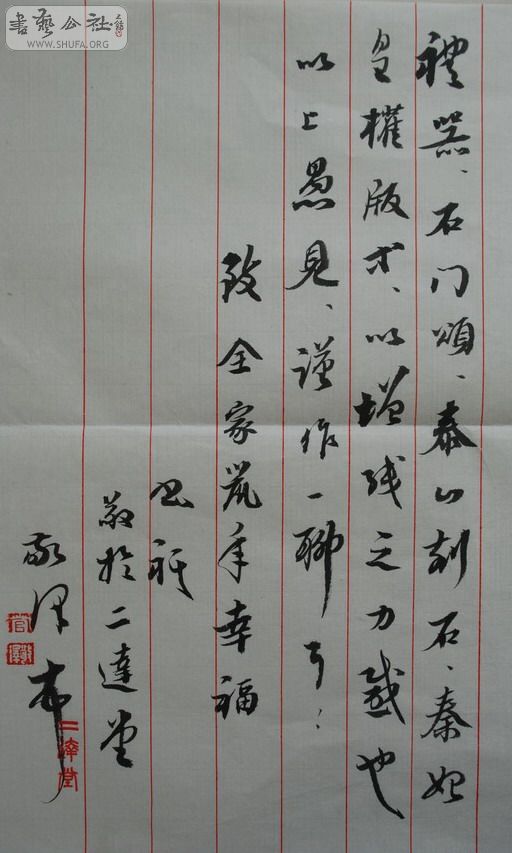 書藝公社
WWW.SHUFA.ORG
禮器、石门頌、泰山刻石、秦始
皇權版才、以增线之力感也
以上愚見、謹作一聊耳：
致全家鼠年幸福
書祇
敬於二達堂
敬澤
二達堂